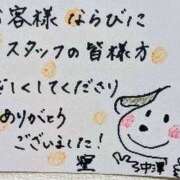 お客様 ならびに
スタッフの皆様方
だしくしてくださり
ありがとう
ございました！
中澤